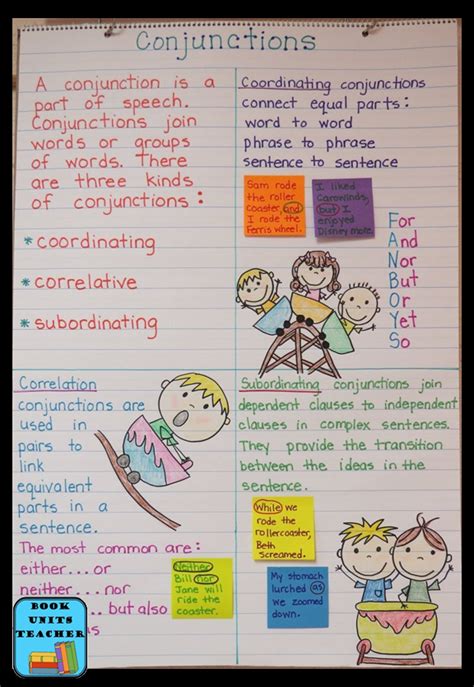 Conjunctions
A conjunction is a
part of speech.
Conjunctions join
words or groups
of words. There
are three kinds
of conjunctions:
* coordinating
* correlative
* subordinating
Coordinating conjunctions
connect equal parts:
word to word
phrase to phrase
sentence to sentence
Sam rode
the roller
coaster, and
I rode the
Ferris wheel.
I liked
Carowinds,
but I
enjoyed
Disney more.
For
And
Nor
But
Or
Yet
So
Correlation
conjunctions are
used in
pairs to
link
equivalent
parts in a
sentence.
The most common are:
either...or
neither...nor
...but also
Neither
Bill nor
Jane will
ride the
coaster.
Subordinating conjunctions join
dependent clauses to independent
clauses in complex sentences.
They provide the transition
between the ideas in the
sentence.
While we
rode the
rollercoaster,
Beth
screamed.
My stomach
lurched as
we zoomed
down.
BOOK
UNITS
TEACHER